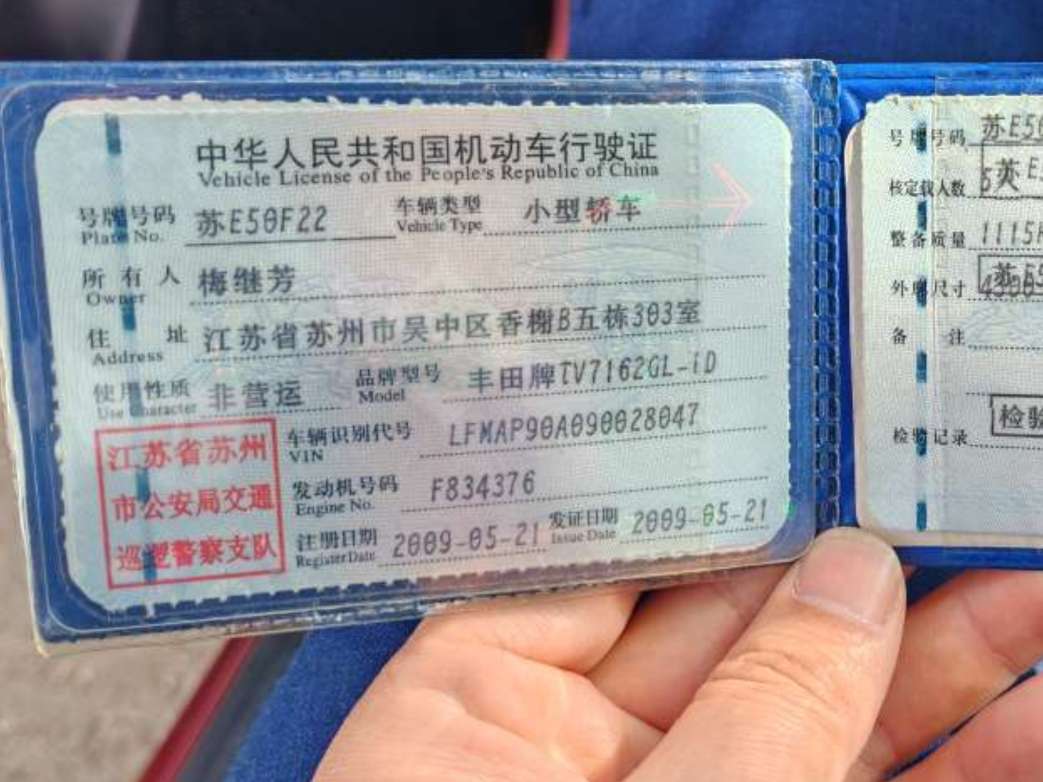 中华人民共和国机动车行驶证
Vehicle License of the People's Republic of China
号牌号码 苏E50F22 车辆类型 小型轿车
Plate No. Vehicle Type
所有人 梅继芳
Owner
住址 江苏省苏州市吴中区香榭B五栋303室
Address
使用性质 非营运 品牌型号 丰田牌TV7162GL-iD
Use Character Model
江苏省苏州
市公安局交通
巡逻警察支队
车辆识别代号 LFMAP90A090028047
VIN
发动机号码 F834376
Engine No.
注册日期 2009-05-21 发证日期 2009-05-21
Register Date Issue Date
号牌号码 苏E50
苏E5
核定载人数 5人
整备质量 1115K
外廓尺寸
备注
检验
检验记录